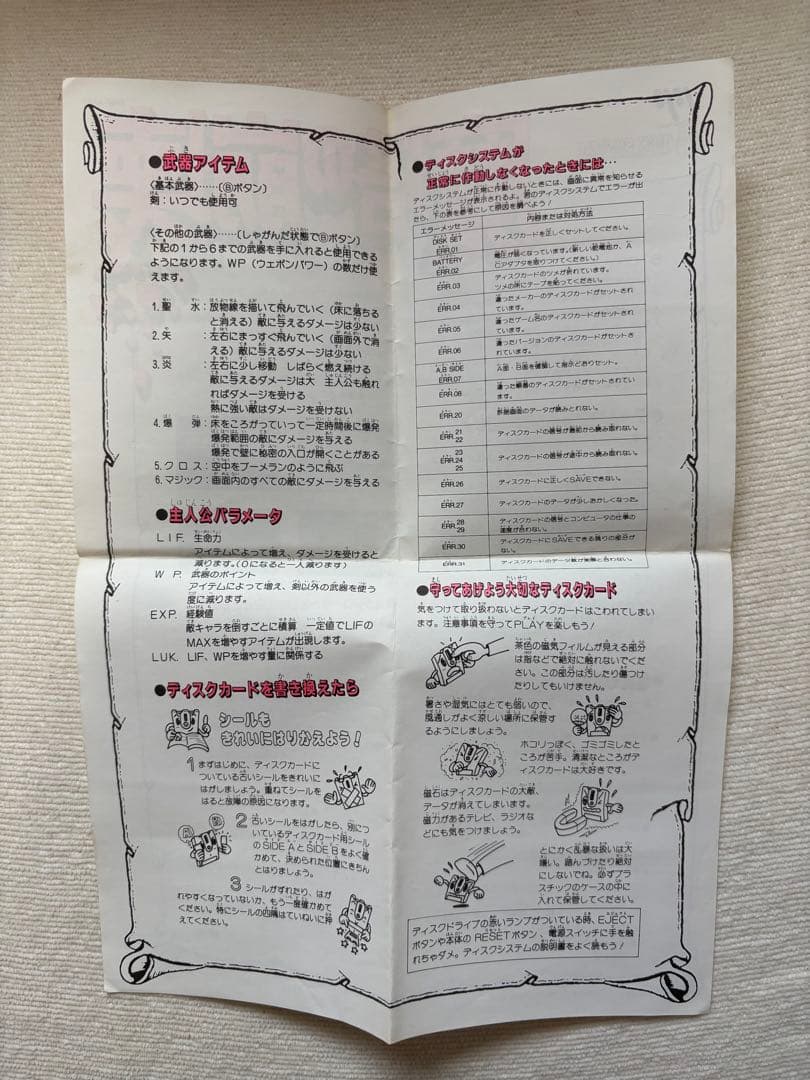 ●武器アイテム
〈基本武器〉……(Ⓑボタン)
剣：いつでも使用可
〈その他の武器〉……(しゃがんだ状態でⒷボタン)
下記の1から6までの武器を手に入れると使用できる
ようになります。WP（ウェポンパワー）の数だけ使
えます。
1.聖　水：放物線を描いて飛んでいく（床に落ちる
と消える）敵に与えるダメージは少ない
2.矢　　：左右にまっすぐ飛んでいく（画面外で消
える）敵に与えるダメージは少ない
3.炎　　：左右に少し移動　しばらく燃え続ける
敵に与えるダメージは大　主人公も触れ
ればダメージを受ける
熱に強い敵はダメージを受けない
4.爆　弾：床をころがっていって一定時間後に爆発
爆発範囲の敵にダメージを与える
爆発で壁に秘密の入口が開くことがある
5.クロス：空中をブーメランのように飛ぶ
6.マジック：画面内のすべての敵にダメージを与える
●主人公パラメータ
LIF. 生命力
アイテムによって増え、ダメージを受けると
減ります。(0になると一人減ります)
WP. 武器のポイント
アイテムによって増え、剣以外の武器を使う
度に減ります。
EXP. 経験値
敵キャラを倒すごとに積算　一定値でLIFの
MAXを増やすアイテムが出現します。
LUK. LIF、WPを増やす量に関係する
●ディスクカードを書き換えたら
シールも
きれいにはりかえよう！
1 まずはじめに、ディスクカードに
ついている古いシールをきれいに
はがしましょう。重ねてシールを
はると故障の原因になります。
A B
2 古いシールをはがしたら、別につ
いているディスクカード用シール
のSIDE AとSIDE Bをよく確
かめて、決められた位置にきちん
とはりましょう。
3 シールがずれたり、はが
れやすくなっていないか、もう一度確かめて
ください。特にシールの四隅はていねいに押
えてください。
●ディスクシステムが
正常に作動しなくなったときには…
ディスクシステムが正常に作動しないときには、画面に異常を知らせる
エラーメッセージが表示されるよ。君のディスクシステムでエラーが出
たら、下の表を参考にして原因を調べよう！
エラーメッセージ　内容または対処方法
DISK SET ERR.01　ディスクカードを正しくセットしてください。
BATTERY ERR.02　電圧が弱くなっています。(新しい乾電池か、A
Cアダプタを取りつけてください。)
ERR.03　ディスクカードのツメが折れています。
ツメの所にテープを貼ってください。
ERR.04　違ったメーカーのディスクカードがセットされ
ています。
ERR.05　違ったゲーム名のディスクカードがセットさ
れています。
ERR.06　違ったバージョンのディスクカードがセットさ
れています。
A,B SIDE ERR.07　A面・B面を確認して指示どおりセット。
ERR.08　違った順番のディスクカードがセットされてい
ます。
ERR.20　許諾画面のデータが読みとれない。
ERR. 21 22　ディスクカードの信号が最初から読み取れない。
ERR. 23 24 25　ディスクカードの信号が途中から読み取れない。
ERR.26　ディスクカードに正しくSAVEできない。
ERR.27　ディスクカードのデータが少しおかしくなった。
ERR. 28 29　ディスクカードの信号とコンピュータの仕事の
速度が合わない。
ERR.30　ディスクカードにSAVEできる残りの部分が
ない。
ERR.31　ディスクカードのデータ数が実際と合わない。
●守ってあげよう大切なディスクカード
気をつけて取り扱わないとディスクカードはこわれてしまい
ます。注意事項を守ってPLAYを楽しもう！
茶色の磁気フィルムが見える部分
は指などで絶対に触れないでくだ
さい。この部分は汚したり傷つけ
たりしてもいけません。
暑さや湿気にはとても弱いので、
風通しがよく涼しい場所に保管す
るようにしましょう。
ホコリっぽく、ゴミゴミしたと
ころが苦手。清潔なところがデ
ィスクカードは大好きです。
磁石はディスクカードの大敵、
データが消えてしまいます。
磁力があるテレビ、ラジオな
どにも気をつけましょう。
とにかく乱暴な扱いは大
嫌い。踏んづけたり絶対
にしないでね。必ずプラ
スチックのケースの中に
入れて保管してください。
ディスクドライブの赤いランプがついている時、EJECT
ボタンや本体のRESETボタン、電源スイッチに手を触
れちゃダメ。ディスクシステムの説明書をよく読もう！